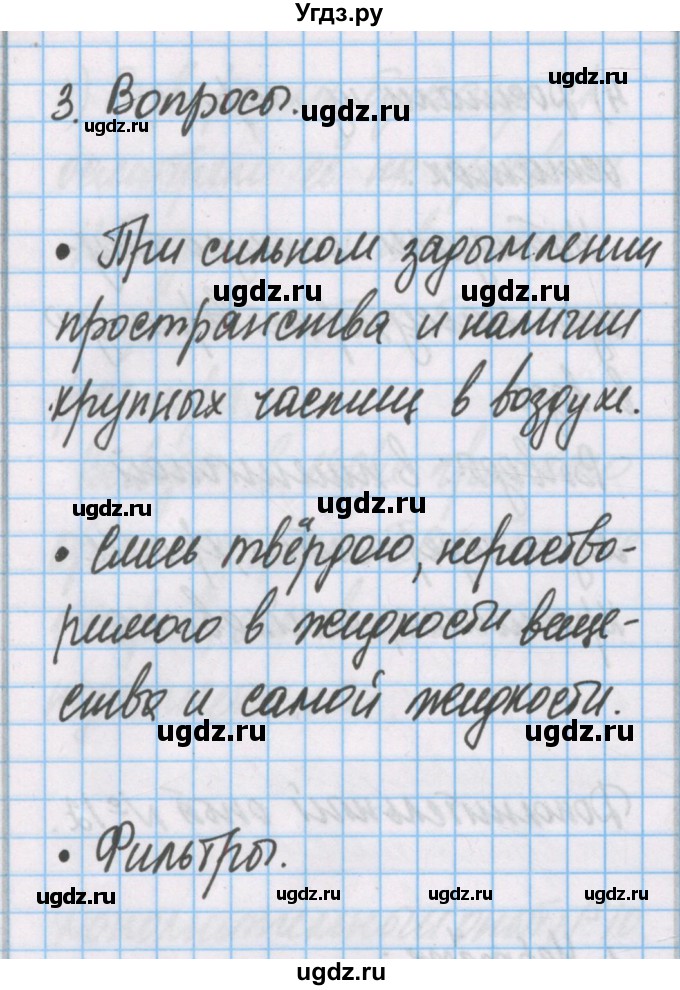 Угдз.ру
ugdz.ru
3. Вопросы.
ugdz.ru
ugdz.ru
• При сильном задымлении
ugdz.ru
ugdz.ru
пространства и наличии
крупных частиц в воздухе.
ugdz.ru
ugdz.ru
• Смесь твёрдого, нераство-
римого в жидкости веще-
ства и самой жидкости.
ugdz.ru
ugdz.ru
• Фильтры.
ugdz.ru
ugdz.ru
ugdz.ru
ugdz.ru
ugdz.ru